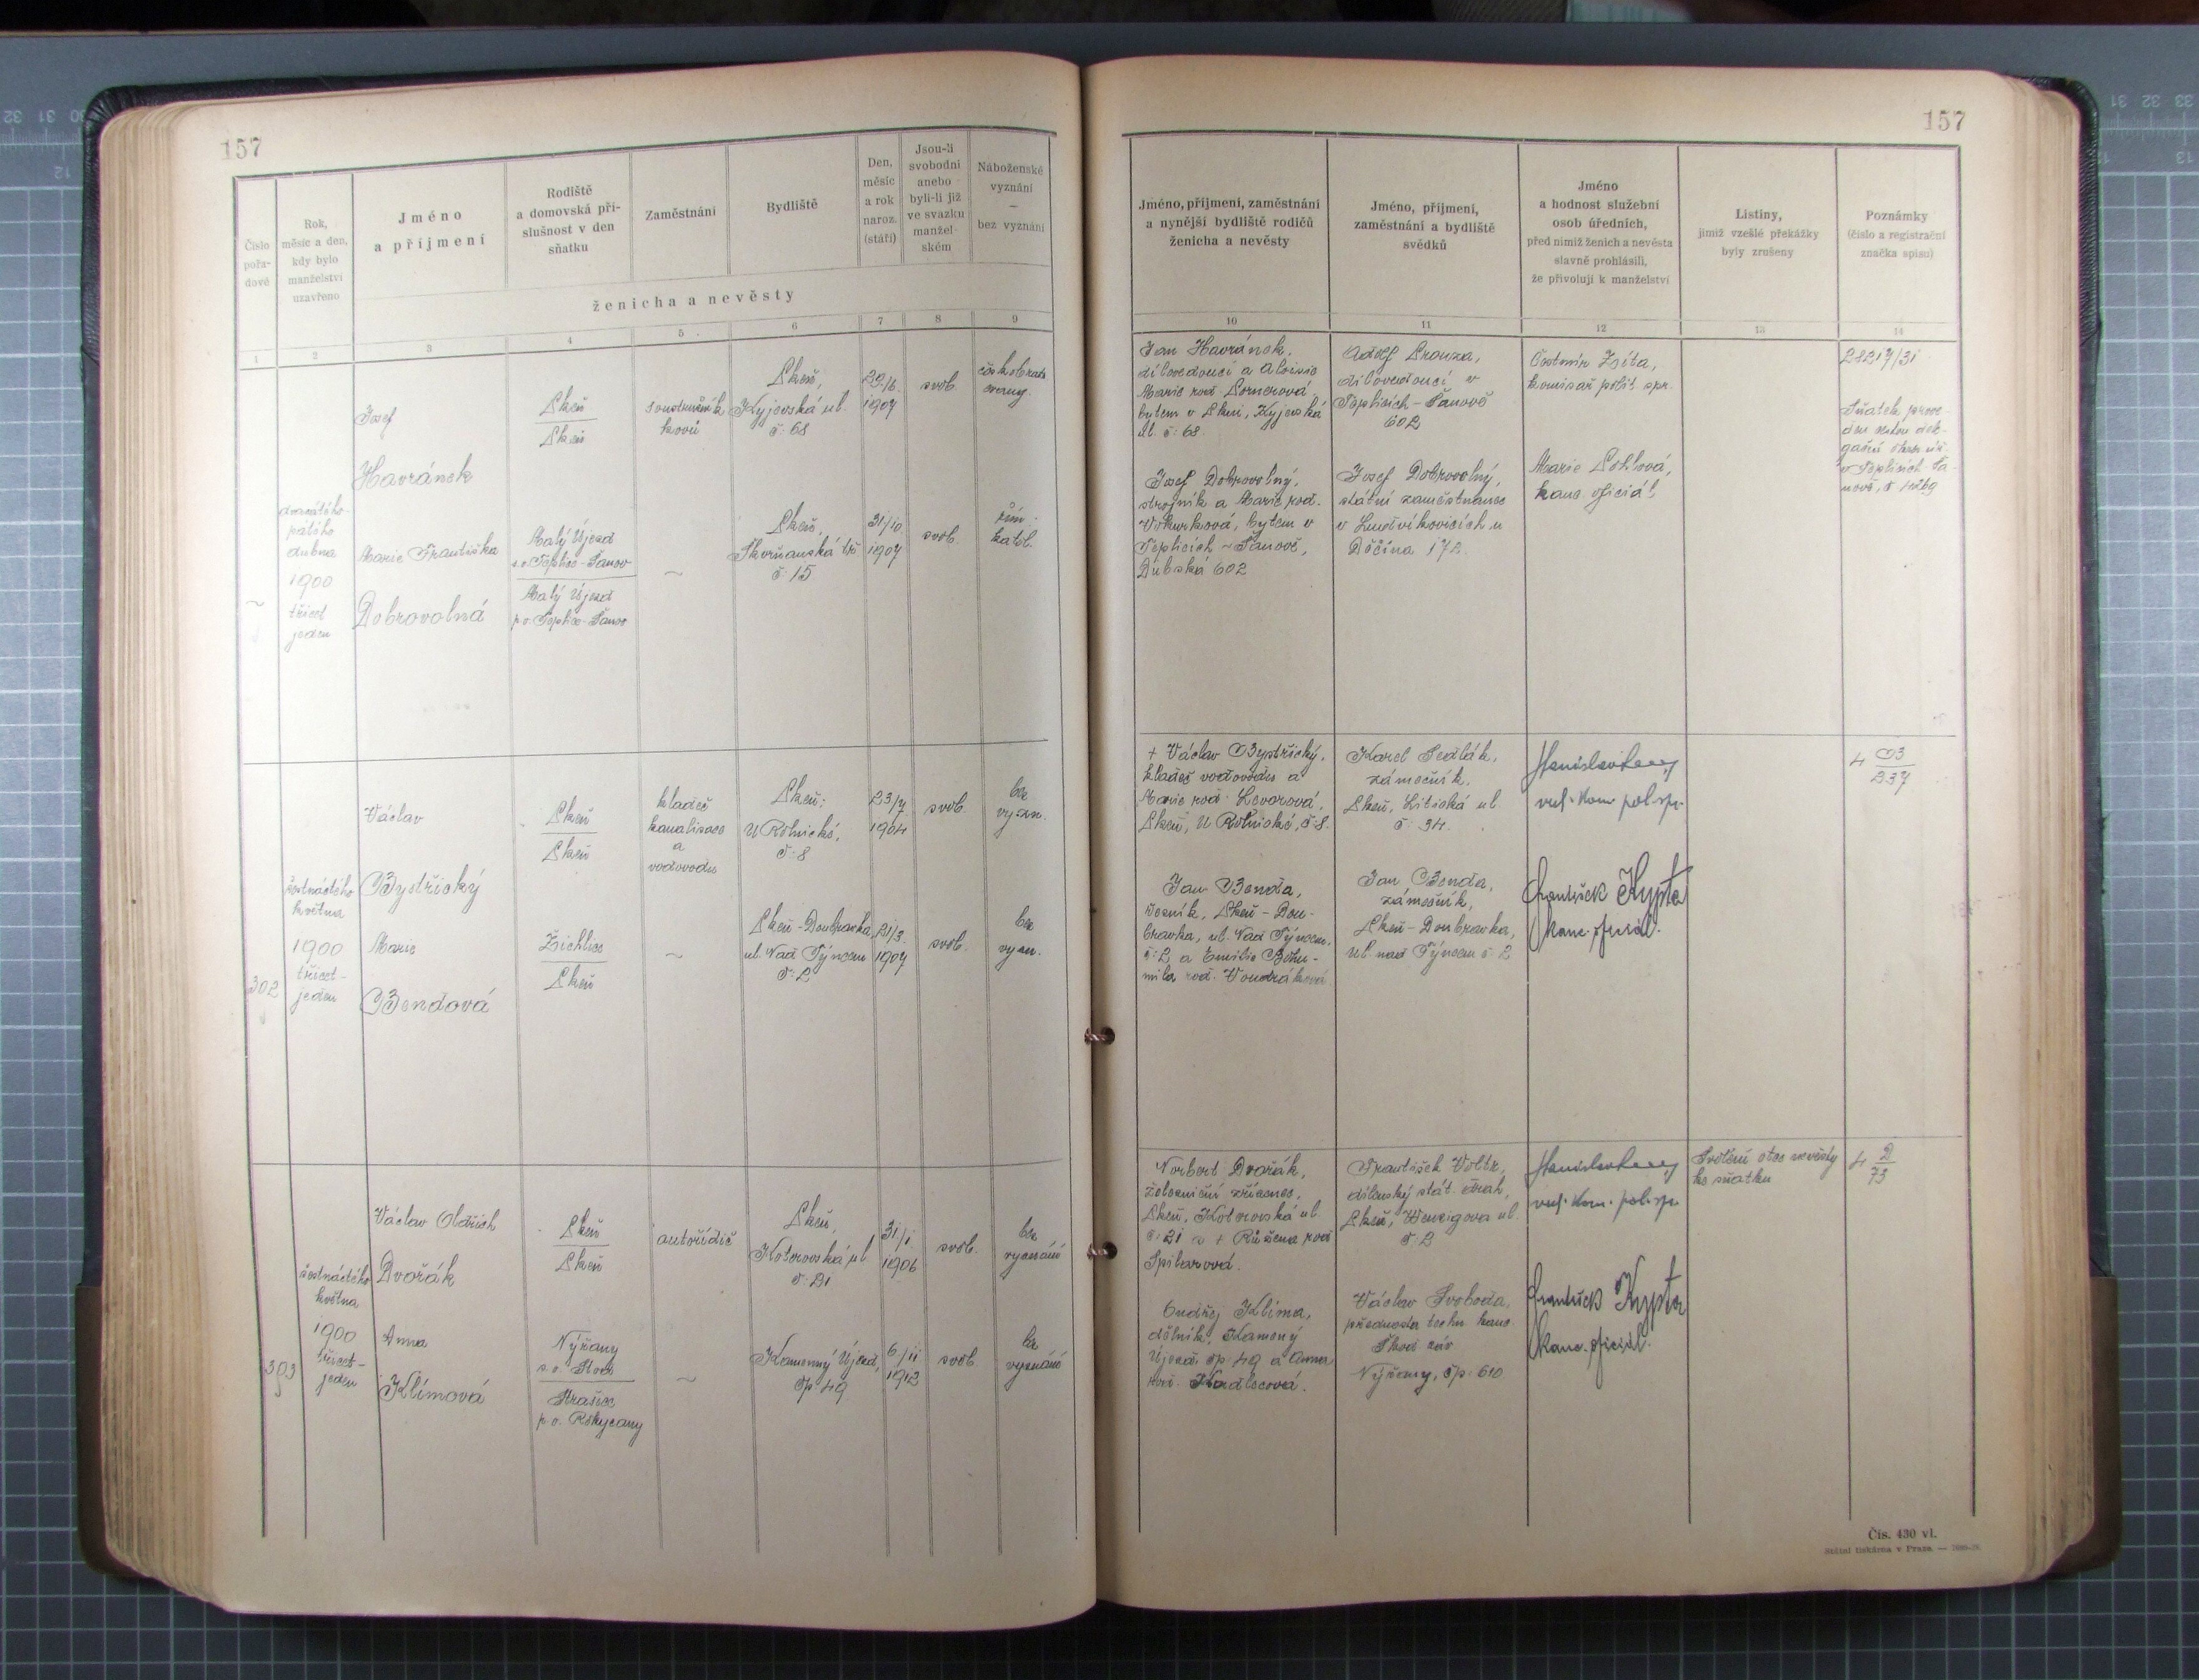 157
Číslo
pořa-
dové
Rok,
měsíc a den,
kdy bylo
manželství
uzavřeno
Jméno
a příjmení
Rodiště
a domovská pří-
slušnost v den
sňatku
Zaměstnání
Bydliště
Den,
měsíc
a rok
naroz.
(stáří)
Jsou-li
svobodni
anebo
byli-li již
ve svazku
manžel-
ském
Náboženské
vyznání
—
bez vyznání
ženicha a nevěsty
1 2 3 4 5 6 7 8 9
dvacátého
pátého
dubna
1900
třicet
jeden
Josef
Havránek
Plzeň
Plzeň
soustružník
kovů
Plzeň,
Kyjevská ul.
č: 68
29/6.
1907
svob.
Marie Františka
Dobrovolná
Malý Újezd
s.o. Teplice-Šanov
Malý Újezd
p.o. Teplice-Šanov
~
Plzeň,
Skvrňanská tř.
č: 15
31/10
1907
svob.
řím.
katol.
302
šestnáctého
května
1900
třicet-
jeden
Václav
Bystřický
Plzeň
Plzeň
kladeč
kanalisace
a
vodovodu
Plzeň,
U Rólnické,
č: 8
23/7
1904
svob.
bez
vyzn.
Marie
Bendová
Žichlice
Plzeň
~
Plzeň-Doubravka,
ul. Nad Týncem
č: 2
21/3.
1907
svob.
bez
vyzn.
303
šestnáctého
května
1900
třicet-
jeden
Václav Oldřich
Dvořák
Plzeň
Plzeň
autořidič
Plzeň,
Koterovská ul
č: 21
31/1.
1906
svob.
bez
vyznání
Anna
Klímová
Nýřany
s.o. Stod
Strašice
p.o. Rokycany
~
Kamenný Újezd,
čp: 49
6/11
1912
svob.
bez
vyznání
157
Jméno, příjmení, zaměstnání
a nynější bydliště rodičů
ženicha a nevěsty
Jméno, příjmení,
zaměstnání a bydliště
svědků
Jméno
a hodnost služební
osob úředních,
před nimiž ženich a nevěsta
slavně prohlásili,
že přivolují k manželství
Listiny,
jimiž vzešlé překážky
byly zrušeny
Poznámky
(číslo a registrační
značka spisu)
10 11 12 13 14
Jan Havránek,
dílovedoucí a Aloisie
Marie roz.
bytem v Plzni, Kyjevská
ul. č: 68.
Adolf
dílovedoucí v
Teplicích-Šanově
602
Čestmír Zsíta,
komisař polit. spr.
28217/31
Josef Dobrovolný,
strojník a Marie roz.
Vokurková, bytem v
Teplicích-Šanově,
Dubská 602
Josef Dobrovolný,
státní zaměstnanec
v Ludvíkovicích u
Děčína 172.
Marie
kanc. oficiál
Sňatek prove-
den
v Teplicích-Ša-
nově,
† Václav Bystřický,
kladeč vodovodu a
Marie roz. Levorová,
Plzeň, U Rólnické, č: 8.
Karel Sedlák,
zámečník,
Plzeň, Litická ul.
č: 34.
vrch. kom. pol. sp.
4 B
237
Jan Benda,
Plzeň-Dou-
bravka, ul. Nad Týncem,
č: 2 a Emilie Bohu-
mila roz. Voudráková
Jan Benda,
zámečník,
Plzeň-Doubravka,
ul. nad Týncem č: 2
František Kypta
kanc. oficiál.
Norbert Dvořák,
železniční zřízenec,
Plzeň, Koterovská ul.
č: 21 a † Růžena roz.
Špilarová.
František
dílenský stát. drah,
Plzeň, Wenzigova ul.
č: 2
vrch. kom. pol. sp.
Svolení otce nevěsty
ke sňatku
4 D
73
Ondřej Klíma,
dělník, Kamenný
Újezd čp: 49 a Anna
roz. Kadlecová.
Václav Svoboda,
přednosta techn. kanc.
Škod. záv.
Nýřany, čp: 610
František Kypta
kanc. oficiál.
Čís. 430 vl.
Státní tiskárna v Praze. —